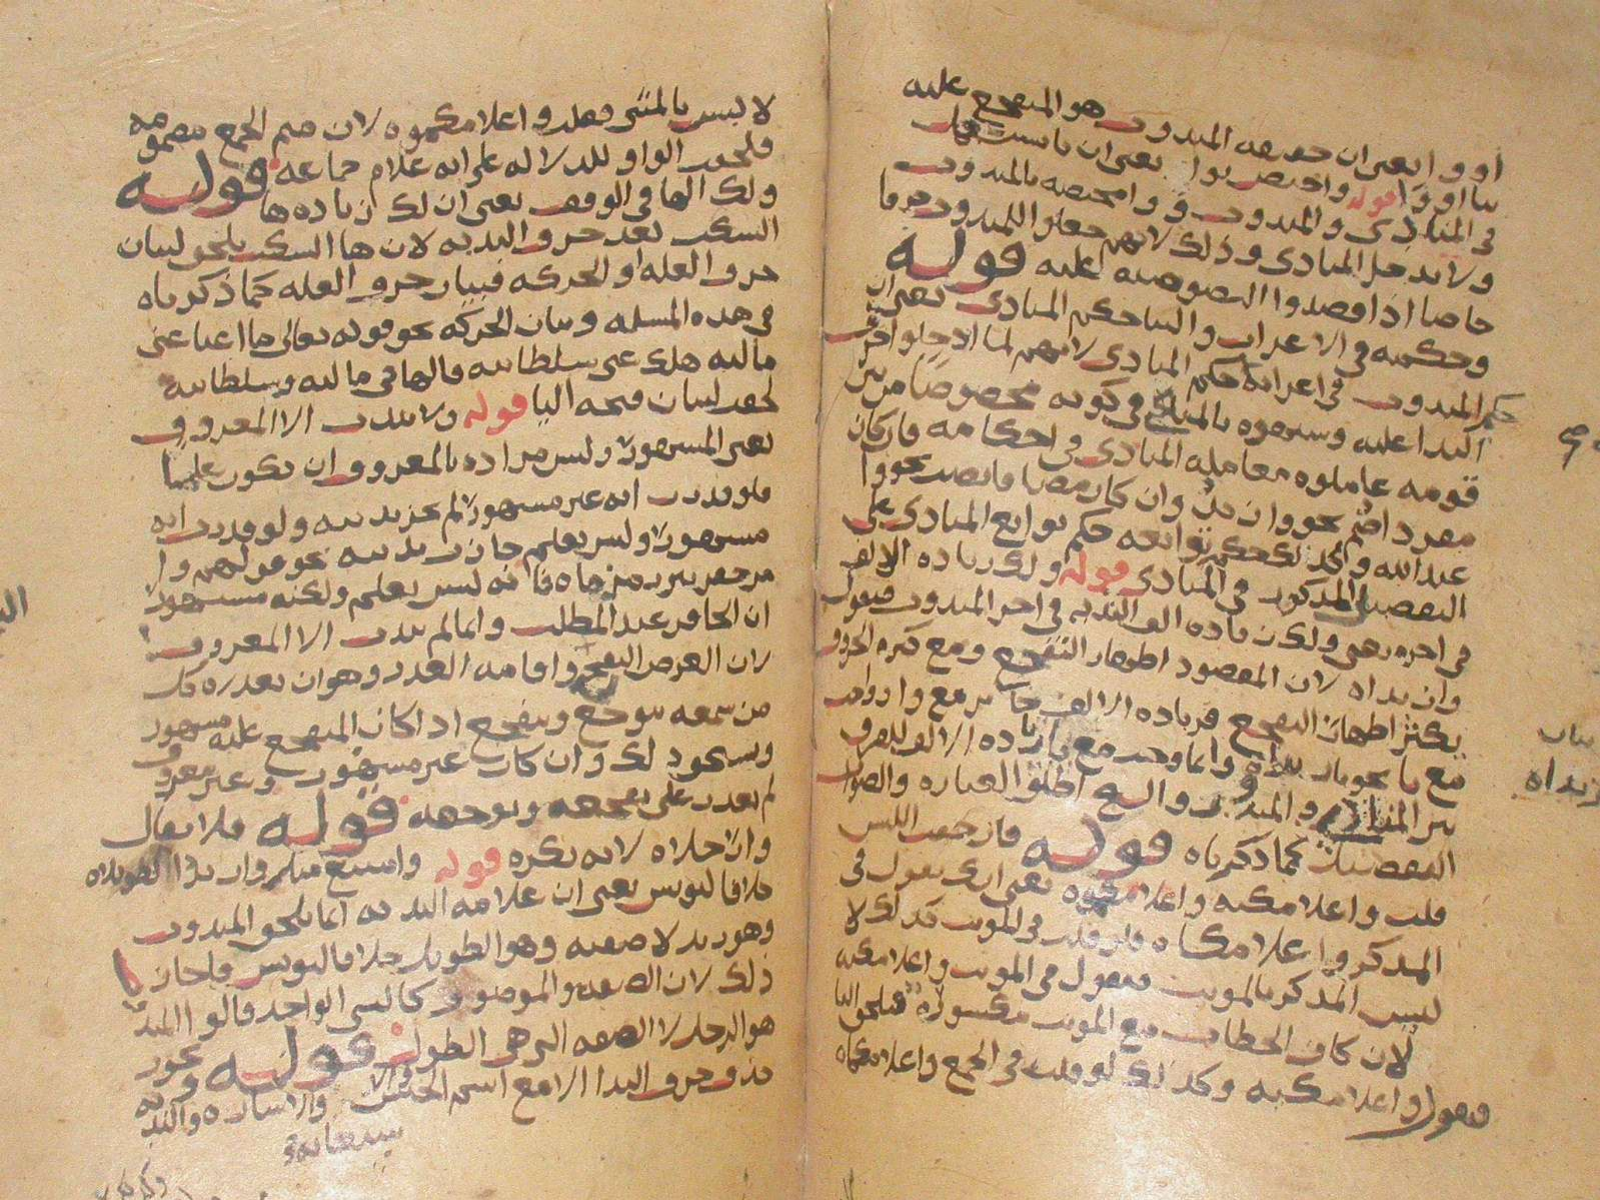 او وا يعني ان حقيقة المندوب هو المتفجع عليه
بيا او وا قوله واختص بوا يعني ان يا مشتركة
في المنادى والمندوب و وا مختصة بالمندوب
ولا تدخل المنادى وذلك لانهم جعلوا للمندوب حرفا
خاصا اذا قصدوا التنصيص عليه قوله
وحكمه في الاعراب والبنا حكم المنادى يعني ان
حكم المندوب في اعرابه حكم المنادى لانهم لما ادخلوا حرف
الندا عليه وشبهوه بالمنادى في كونه مخصوصا من بين
قومه عاملوه معاملة المنادى في احكامه فان كان
مفردا ضم نحو وا زيد وان كان مضافا نصب نحو وا
عبد الله وكذلك حكم توابعه حكم توابع المنادى على
التفصيل المذكور في المنادى قوله ولك زيادة الالف
في اخره يعني ولك زيادة الف الندبة في اخر المندوب فيقول
وا زيداه لان المقصود اظهار التفجع ومع كثرة الحروف
يكثر اظهار التفجع فزيادة الالف جايز مع وا
مع يا نحو يا زيداه وانما وجب مع يا زيادة الالف للفرق
بين المنادى والمندوب والشيخ اطلق العبارة والصواب
التفصيل كما ذكرناه قوله فان خفت اللبس
قلت واغلامكيه واغلامكموه يعني انك تقول في
المذكر واغلامكاه فلو قلت في المونث كذلك لا
لبس المذكر بالمونث فيقول في المونث واغلامكيه
لان كاف الخطاب مع المونث مكسورة فتلحق اليا
فيقول واغلامكيه وكذلك لو قلت في الجمع واغلامكماه
لا لبس بالمثنى فقلت واغلامكموه لان ميم الجمع مضمومة
فلحقت الواو للدلالة على انه علام جماعة قوله
ولك الها في الوقف يعني ان لك زيادة ها
السكت بعد حرف الندبة لان ها السكت يلحق لبيان
حرف العلة او الحركة فبيان حرف العلة كما ذكرناه
في هذه المسلة وبيان الحركة نحو قوله تعالى ما اغنا عني
ماليه هلك عني سلطانيه فالها في ماليه وسلطانيه
لحقت لبيان فتحة اليا قوله ولا يندب الا المعروف
يعني المشهور وليس مراده بالمعروف ان يكون علما
فلو قدرت انه غير مشهور لم يجز ندبته ولو قدرت انه
مشهور وليس بعلم جازت ندبته نحو قولهم وا
من حفر بير زمزماه فانه ليس بعلم ولكنه مشهور
ان الحافر عبد المطلب وانما لم يندب الا المعروف
لان الغرض التفجع واقامة العذر وهو ان يعذره كل
من سمعه يتوجع ويتفجع اذا كان المتفجع عليه مشهور
وان كان غير مشهور وغير معروف
لم يعذر على تفجعه وتوجعه قوله فلا يقال
وا رجلاه لانه نكرة قوله وامتنع مثل وا زيد الطويلاه
خلافا ليونس يعني ان علامة الندبة انما يلحق المندوب
وهو زيد لا صفته وهو الطويل خلافا ليونس فاجاز
ذلك لان الصفة والموصوف كالشي الواحد قالوا
هو الرجل لا الصفة التي هي الطول قوله ويجوز
حذف حرف الندا الا مع اسم الجنس والاشارة والندبة
زيداه